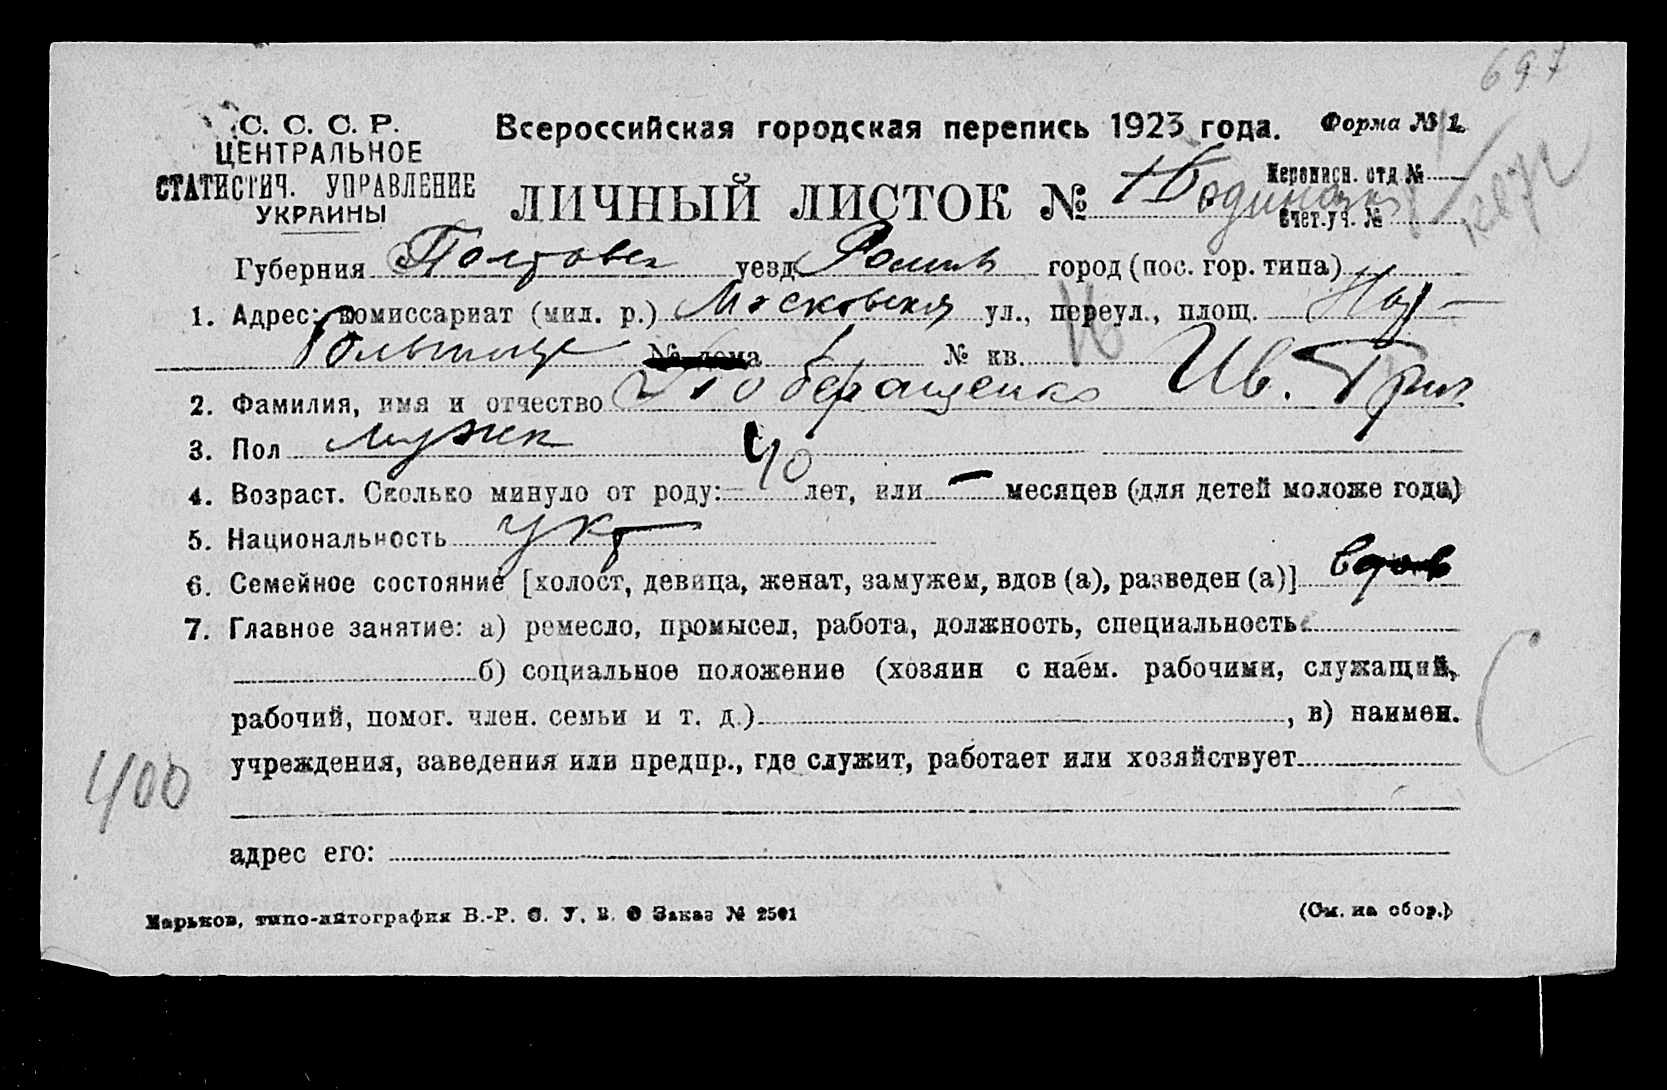 697
С. С. С. Р.
ЦЕНТРАЛЬНОЕ
СТАТИСТИЧ. УПРАВЛЕНИЕ
УКРАИНЫ
Всероссийская городская перепись 1923 года.
Форма № 1.
ЛИЧНЫЙ ЛИСТОК №
Переписн. отд №
Счет.уч. №
Губерния Полтовск уезд Ромны город (пос. гор. типа)
1. Адрес: комиссариат (мил. р.) Московская ул., переул., площ. Нар-
Больница № дома № кв.
2. Фамилия, имя и отчество Ив. Григ
3. Пол мужск
4. Возраст. Сколько минуло от роду: 40 лет, или – месяцев (для детей моложе года)
5. Национальность укр
6. Семейное состояние [холост, девица, женат, замужем, вдов (а), разведен (а)] вдов
7. Главное занятие: а) ремесло, промысел, работа, должность, специальность
б) социальное положение (хозяин с наем. рабочими, служащий,
рабочий, помог. член. семьи и т. д.) , в) наимен.
учреждения, заведения или предпр., где служит, работает или хозяйствует
400
адрес его:
Харьков, типо-литография В.-Р. С. У. В. О Заказ № 2501
(См. на обор.)